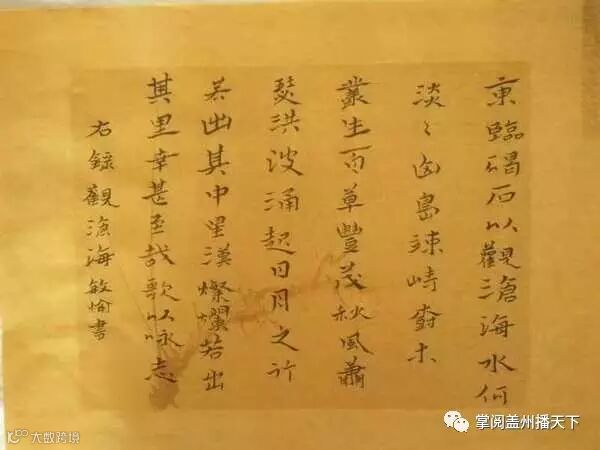 東臨碣石以觀滄海水何
淡〻山島竦峙樹木
叢生百草豐茂秋風蕭
瑟洪波涌起日月之行
若出其中星漢燦爛若出
其里幸甚至哉歌以咏志
右錄觀滄海敏愉書
掌阅盖州播天下
大数跨境